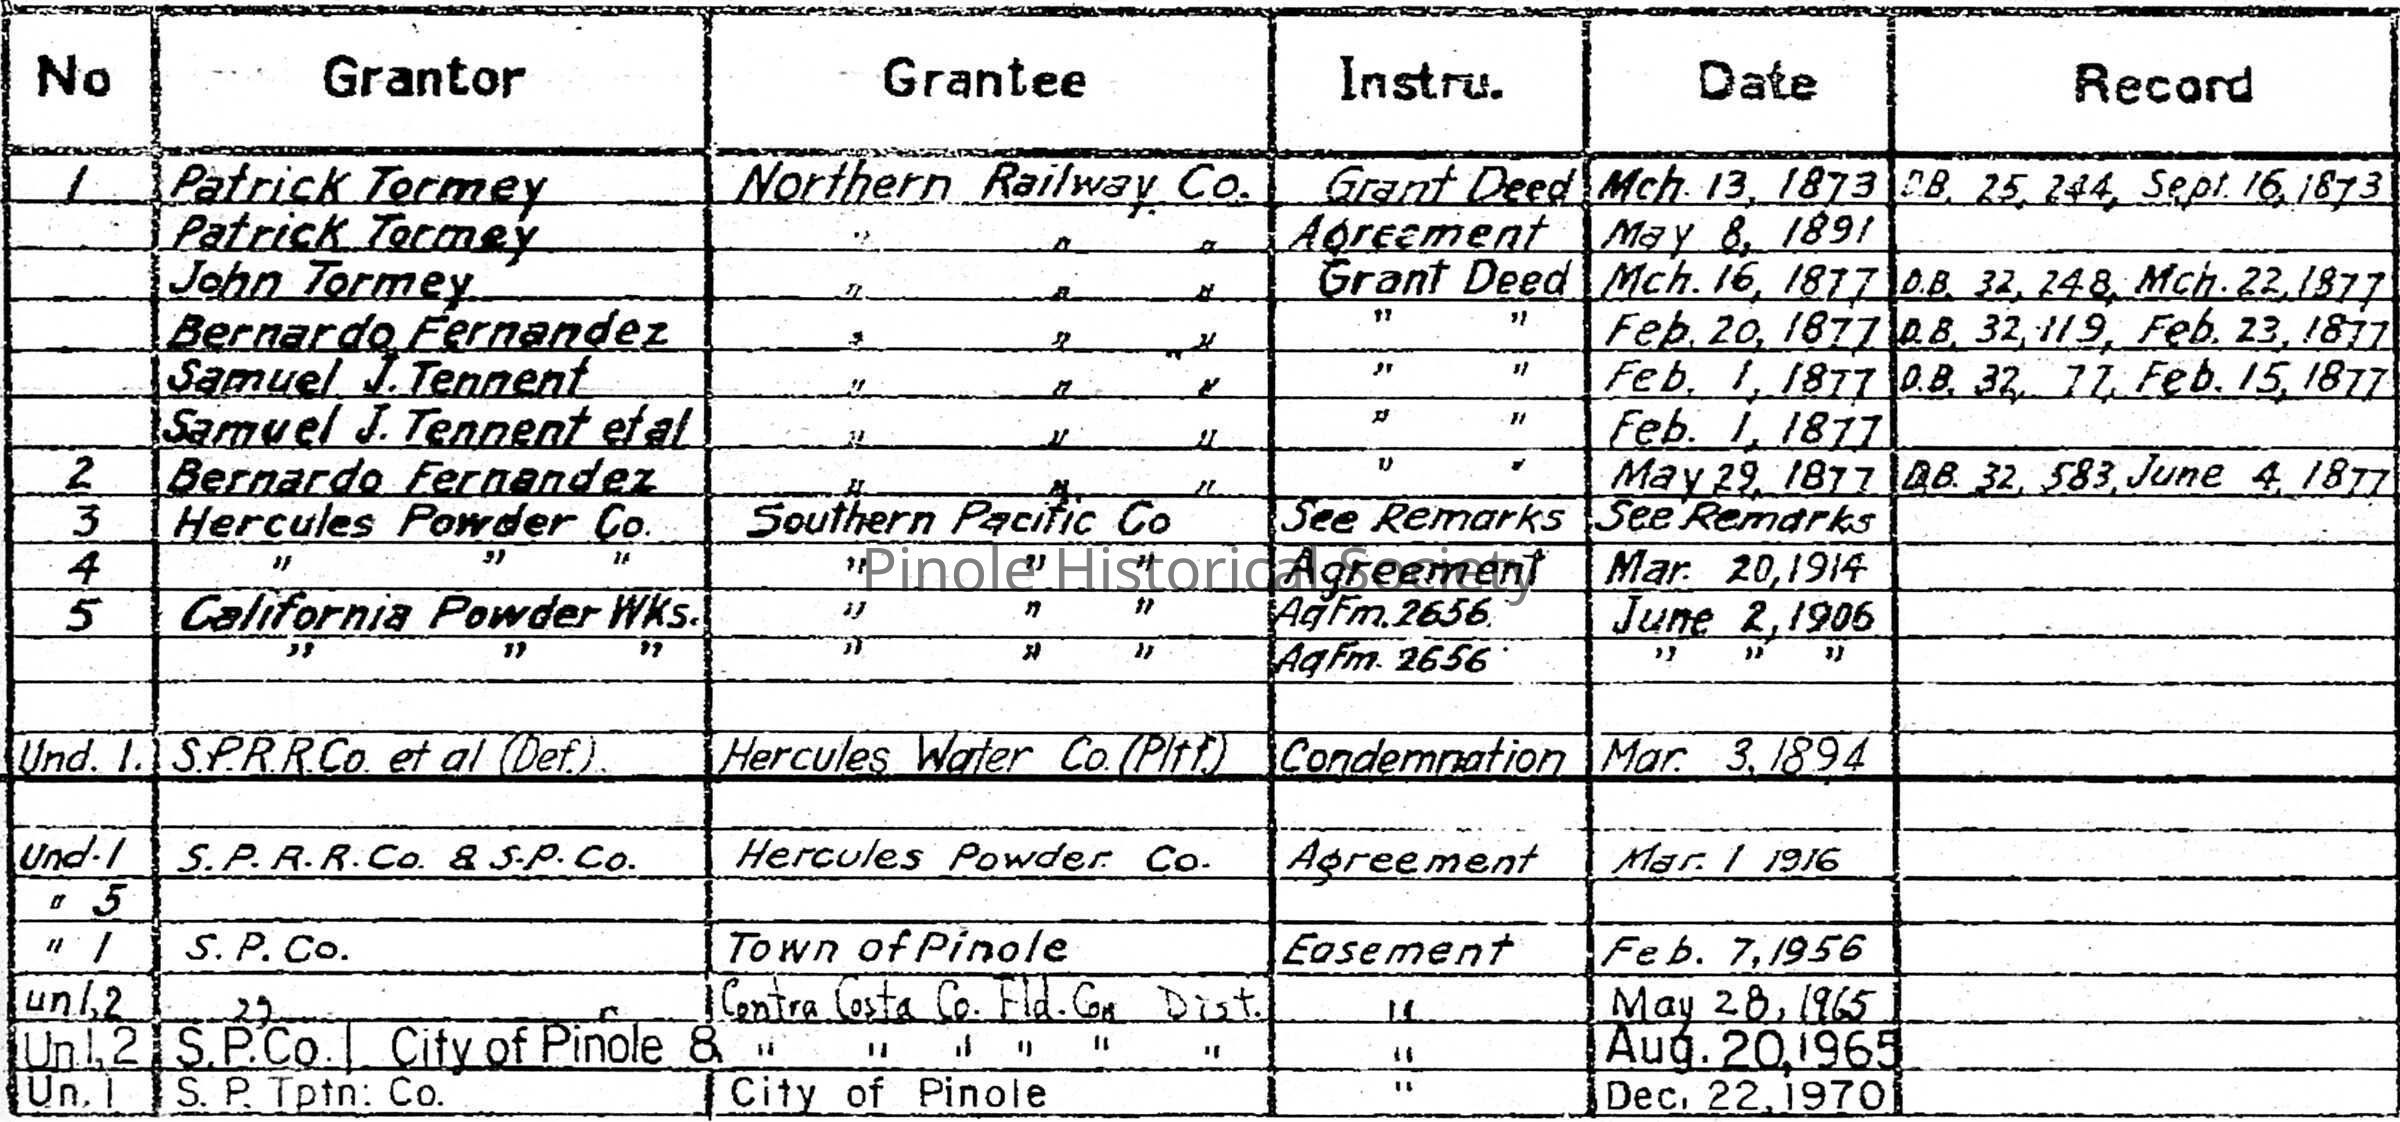 No Grantor Grantee Instru. Date Record
1 Patrick Tormey Northern Railway Co. Grant Deed Mch. 13, 1873 D.B. 25, 244, Sept. 16, 1873
Patrick Tormey " " " Agreement May 8, 1891
John Tormey " " " Grant Deed Mch. 16, 1877 D.B. 32, 248, Mch. 22, 1877
Bernardo Fernandez " " " " " Feb. 20, 1877 D.B. 32, 119, Feb. 23, 1877
Samuel J. Tennent " " " " " Feb. 1, 1877 D.B. 32, 77, Feb. 15, 1877
Samuel J. Tennent et al " " " " " Feb. 1, 1877
2 Bernardo Fernandez " " " " " May 29, 1877 D.B. 32, 583, June 4, 1877
3 Hercules Powder Co. Southern Pacific Co See Remarks See Remarks
4 " " " " " " Agreement Mar. 20, 1914
Pinole Historical Society
5 California Powder Wks. " " " Ag Fm. 2656. June 2, 1906
" " " " " " Ag Fm. 2656 " " "
Und. 1. S.P.R.R.Co. et al (Def.). Hercules Water Co. (Pltf.) Condemnation Mar. 3, 1894
Und. 1 S. P. R. R. Co. & S. P. Co. Hercules Powder Co. Agreement Mar. 1 1916
" 5
" 1 S. P. Co. Town of Pinole Easement Feb. 7, 1956
un 1,2 " " Contra Costa Co. Fld. Con Dist. " May 28, 1965
Un 1, 2 S.P.Co. | City of Pinole & " " " " " " " Aug. 20, 1965
Un. 1 S. P. Tptn: Co. City of Pinole " Dec. 22, 1970